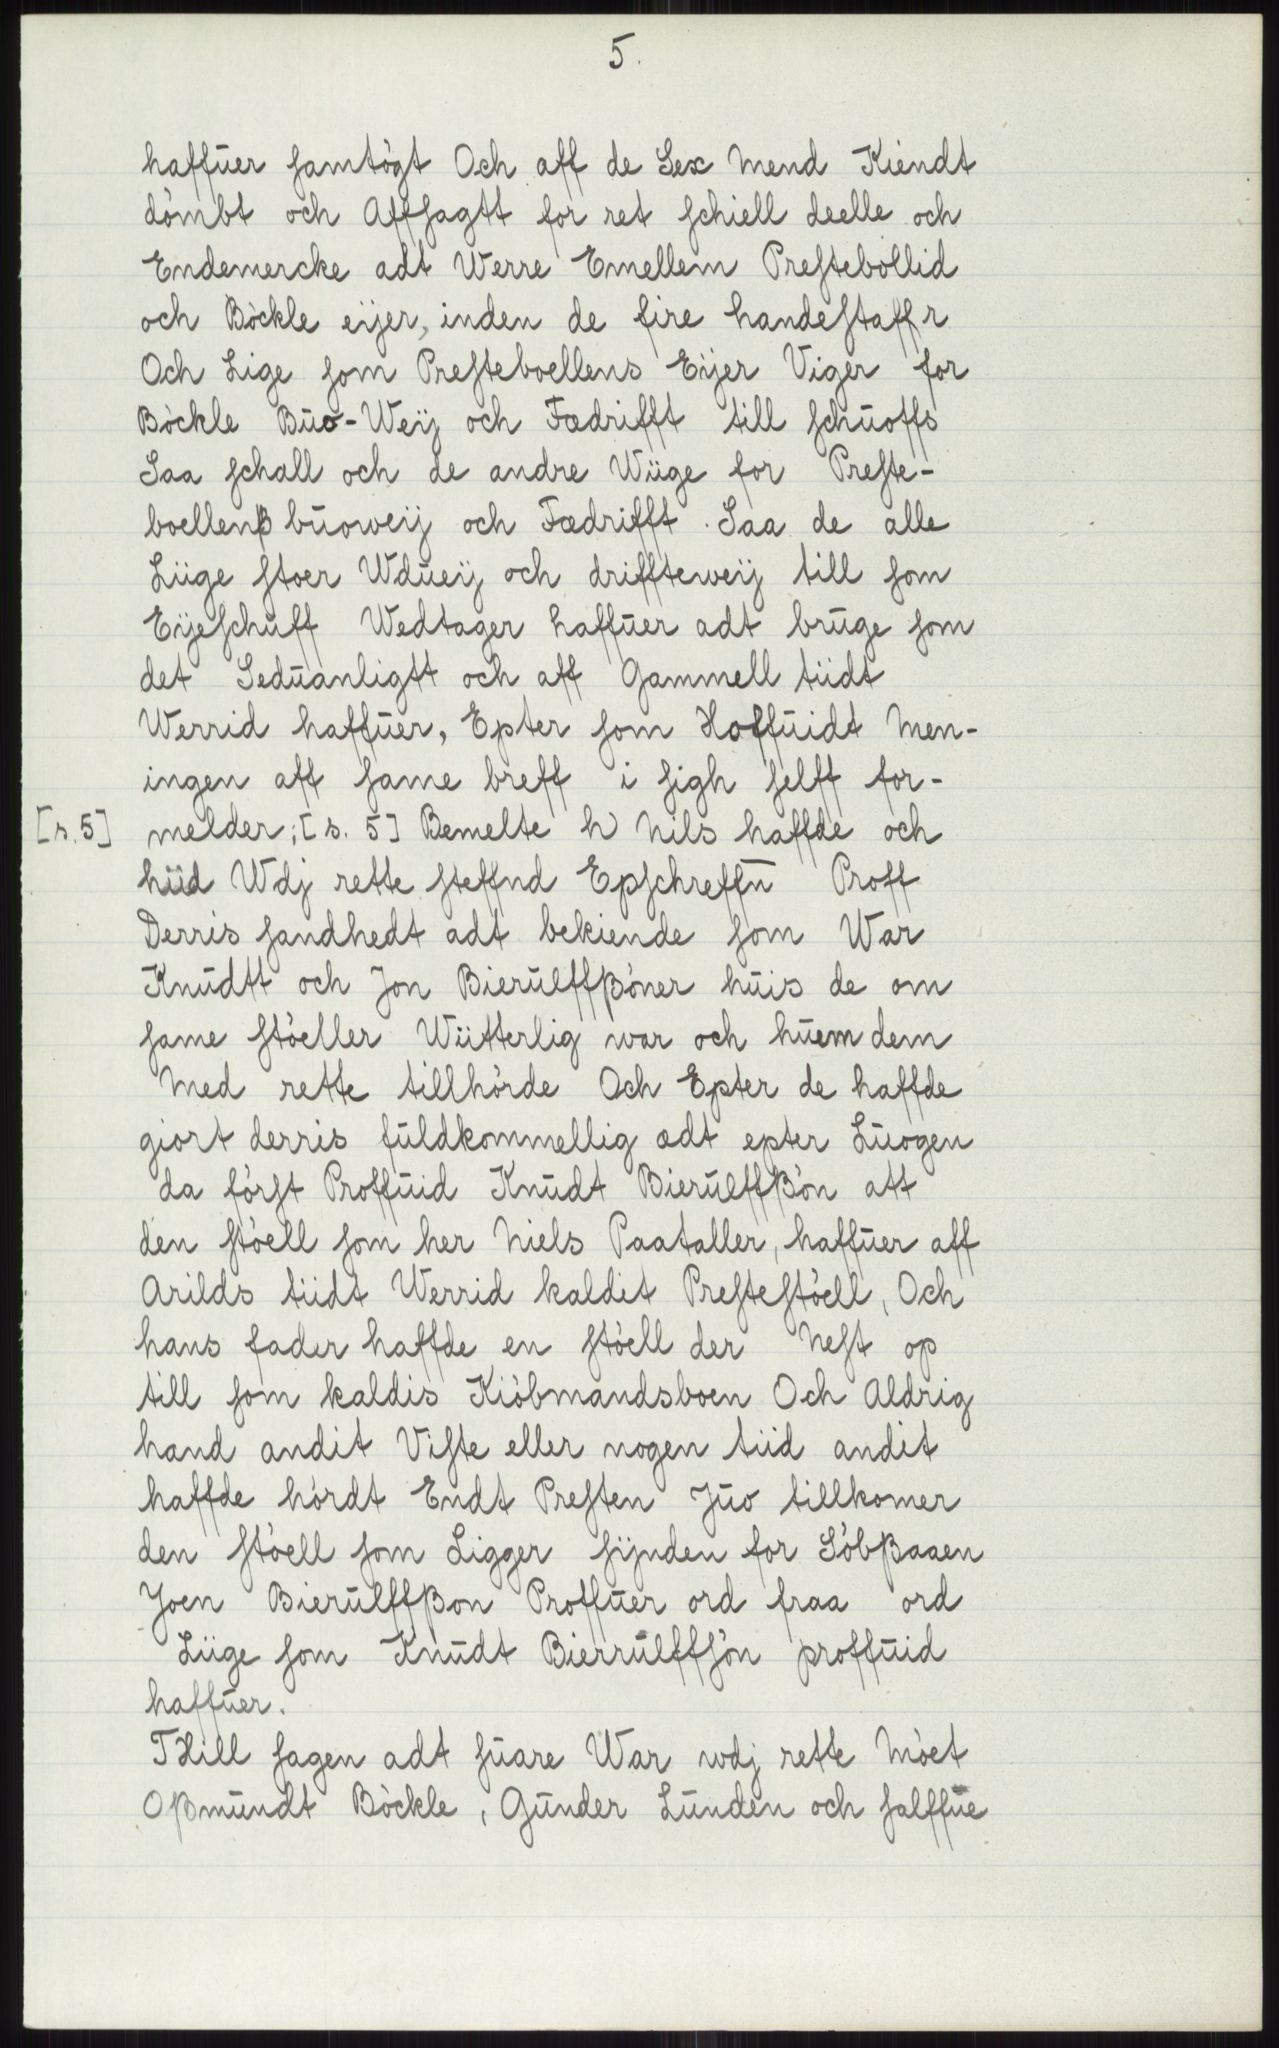 5.
haffuer samtögt Och aff de Sex Mend Kiendt
dömbt och Affsagtt for ret schiell deelle och
Endemercke adt Werre Emellem Prestebollid
och Böckle eijer, inden de fire handestaffr
Och Lige som Presteboellens Eijer Viger for
Böckle Buo-Weij och Fædrifft till schuoffs
Saa schall och de andre Wiige for Preste-
boellenß buoweij och Fædrifft. Saa de alle
Liige stoer Wdueij och driffteweij till som
Eijeschuff Wedtager haffuer adt bruge som
det Seduanligtt och aff Gammell tiidt
Werrid haffuer, Epter som Hoffuidt Men-
ingen aff same breff i sigh selff for-
[s.5] melder; [s. 5] Bemelte h Nils haffde och
hiid Wdj rette steffnd Epschreffn Proff
Derris sandhedt adt bekiende som War
Knudtt och Jon Bierulffßöner huis de om
same stöeller Wiitterlig war och huem dem
Med rette tillhörde Och Epter de haffde
giort derris fuldkommellig ædt epter Luogen
da först Proffuid Knudt Bierulffßön att
den stöell som her Niels Paataller, haffuer aff
Arilds tiidt Werrid kaldit Prestestöell, Och
hans fader haffde en stöell der Nest op
till som kaldis Kiöbmandsboen Och Aldrig
hand andit Viste eller nogen tiid andit
haffde hördt Endt Presten Juo tillkomer
den stöell som Ligger sijnden for Söbßaaen
Joen Bierulffßon Proffuer ord fraa ord
Liige som Knudt Bierrulffsön proffuid
haffuer.
THill sagen adt suare War wdj rette Möet
Oßmundt Böckle, Gunder Lunden och salffue